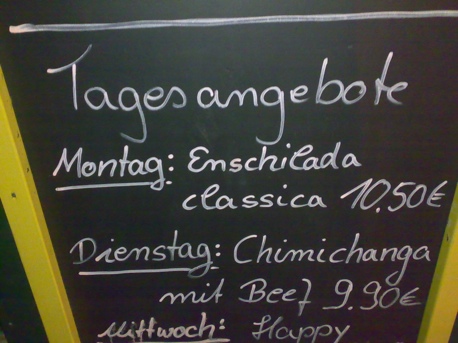 Tagesangebote
Montag: Enschilada
classica 10.50€
Dienstag: Chimichanga
mit Beef 9.90€
Mittwoch: Happy